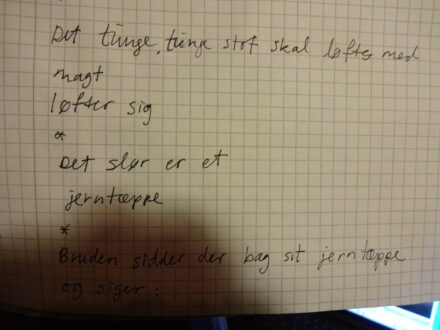 Det tunge, tunge stof skal løftes med
magt
løfter sig
*
Det slør er et
jerntæppe
*
Bruden sidder der bag sit jerntæppe
og siger: